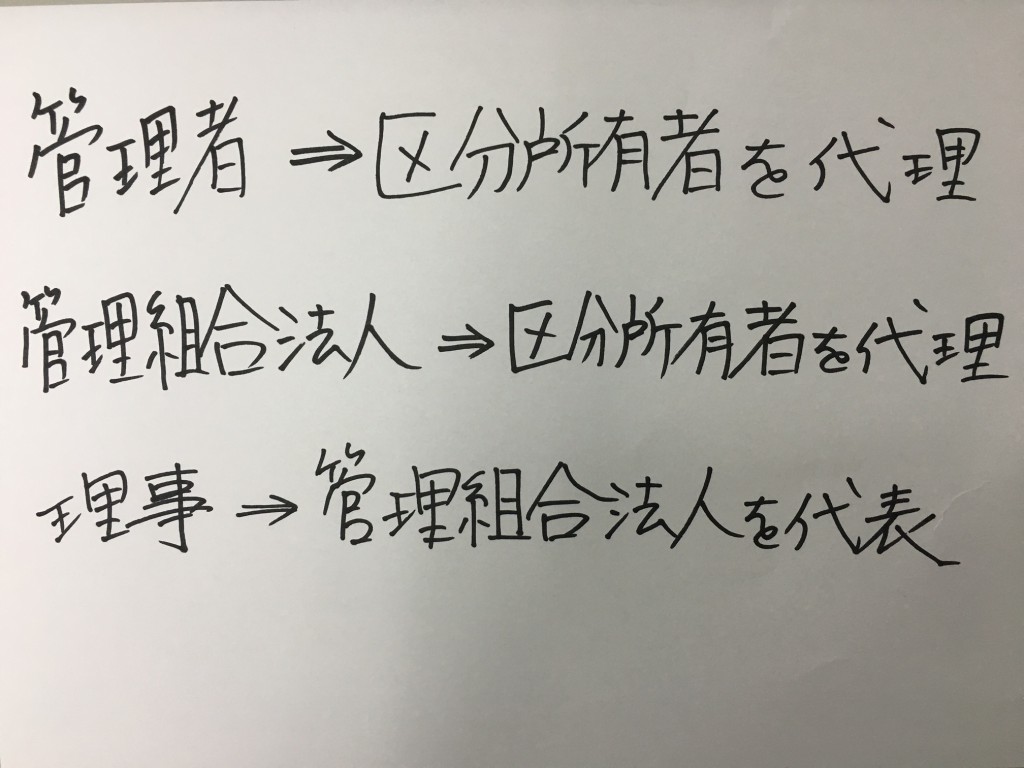 管理者⇒区分所有者を代理
管理組合法人⇒区分所有者を代理
理事⇒管理組合法人を代表